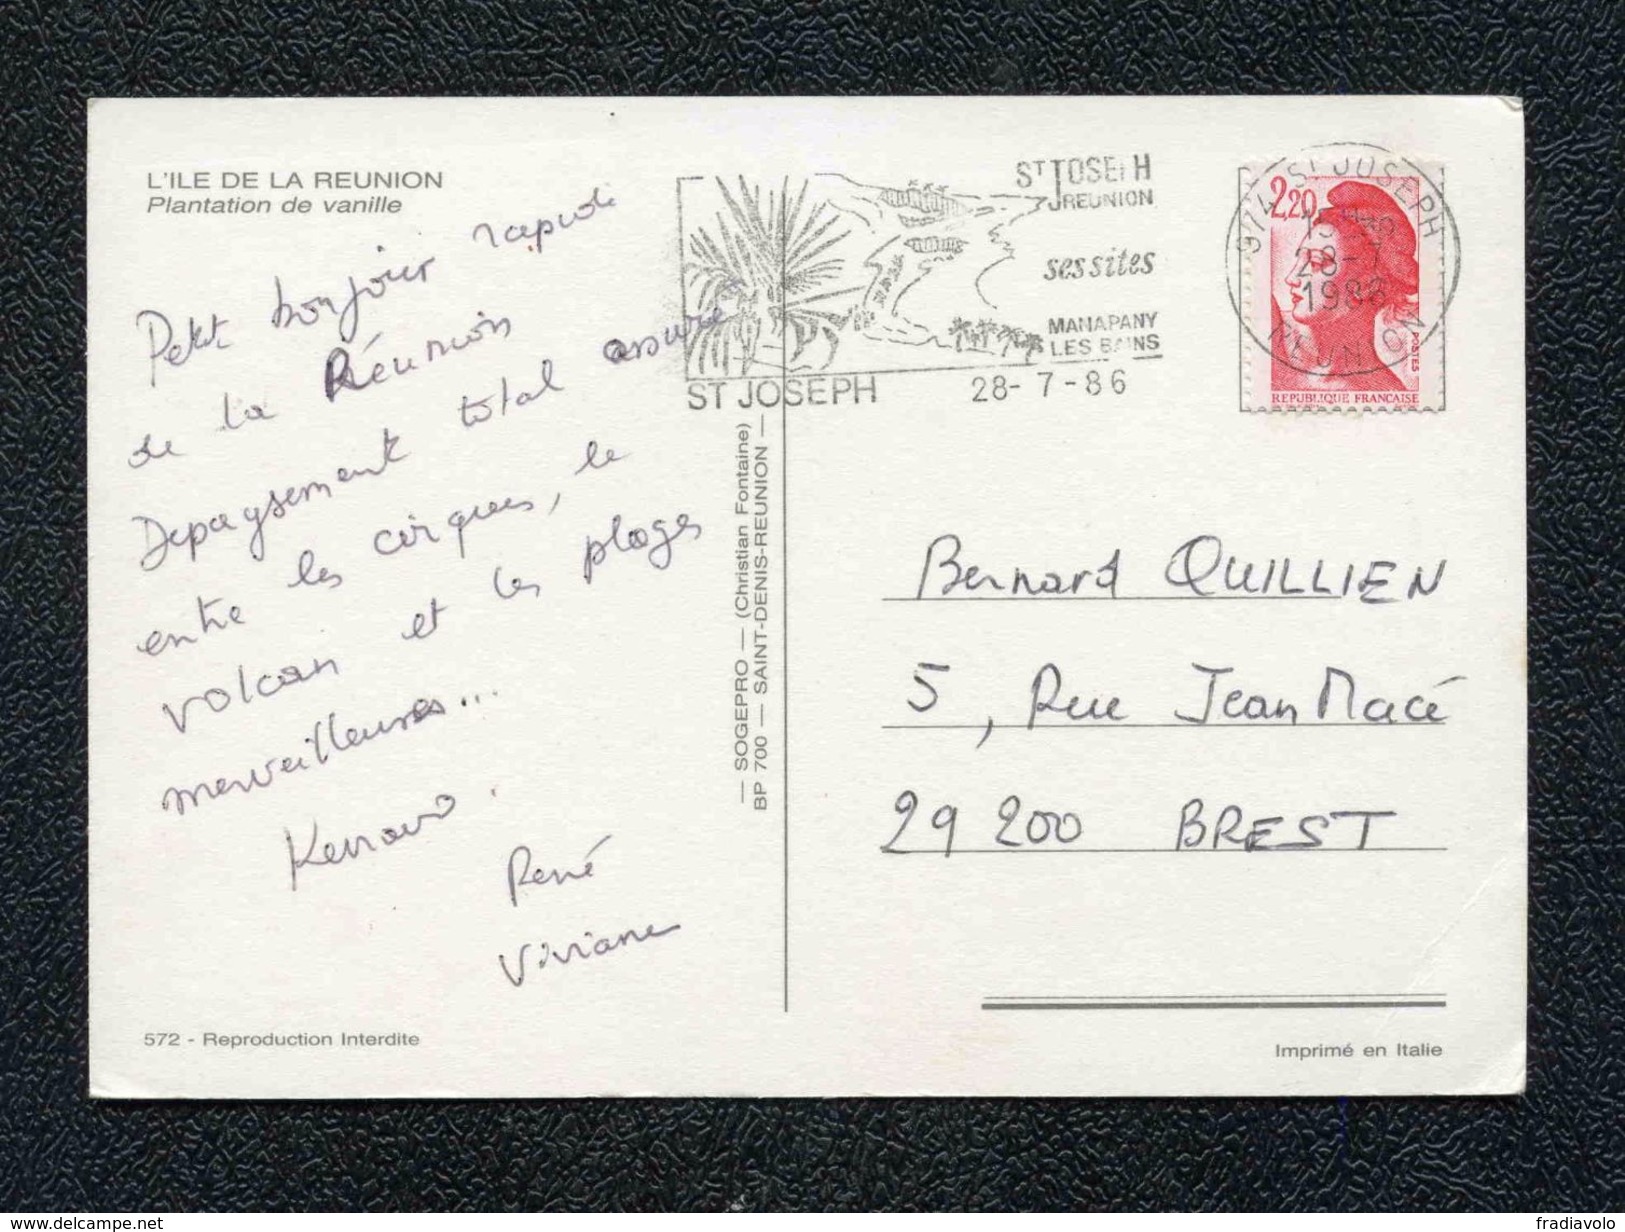 L'ILE DE LA REUNION
Plantation de vanille
Petit bonjour rapide
de la Réunion
Depaysement total assuré
entre les cirques, le
volcan et les plages
merveilleuses...
Kenavo
René
Viviane
572 - Reproduction Interdite
— SOGEPRO — (Christian Fontaine)
BP 700 — SAINT-DENIS-REUNION —
ST JOSEPH
REUNION
ses sites
MANAPANY
LES BAINS
ST JOSEPH 28-7-86
974 ST JOSEPH
28-7
REUNION
2,20
POSTES
REPUBLIQUE FRANCAISE
Bernard QUILLIEN
5, Rue Jean Macé
29 200 BREST
Imprimé en Italie
www.delcampe.net
fradiavolo